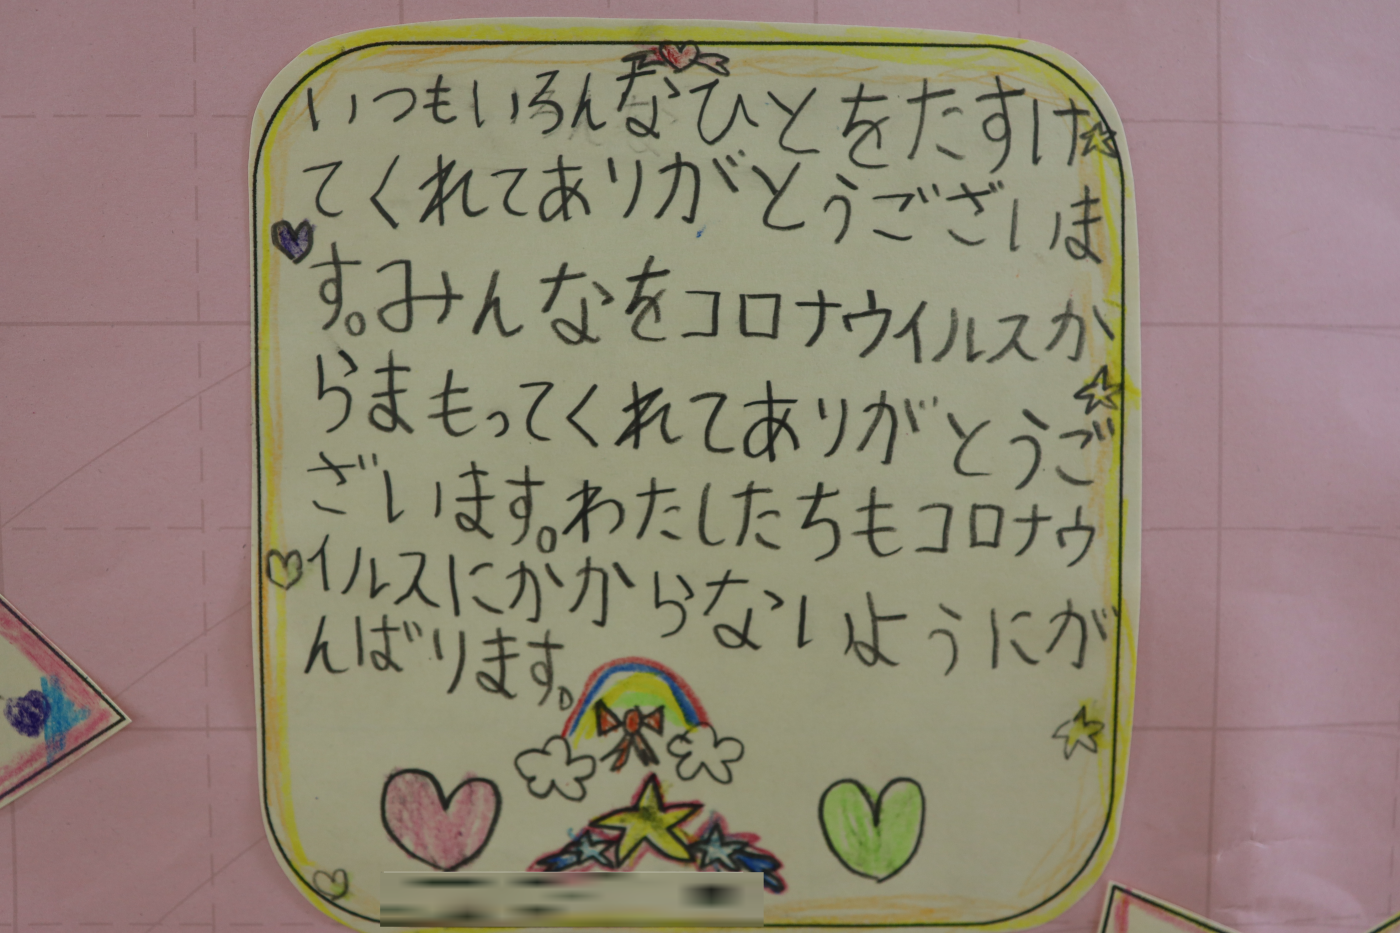 いつもいろんなひとをたすけ
てくれてありがとうございま
す。みんなをコロナウイルスか
らまもってくれてありがとうご
ざいます。わたしたちもコロナウ
イルスにかからないようにが
んばります。